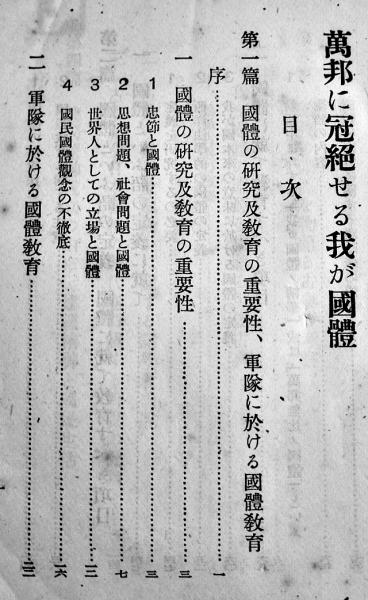 萬邦に冠絕せる我が國體
目次
第一篇 國體の研究及敎育の重要性、軍隊に於ける國體敎育
序……一
一 國體の研究及敎育の重要性……三
1 忠節と國體……三
2 思想問題、社會問題と國體……七
3 世界人としての立場と國體……一二
4 國民國體觀念の不徹底……一六
二 軍隊に於ける國體敎育……二二